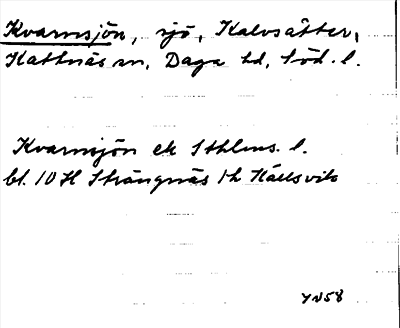 Kvarnsjön, sjö, Kalvsätter,
Kattnäs sn, Daga hd, Söd. l.
Kvarnsjön ek Sthlms. l.
bl. 10 H Strängnäs 1h Hållsvik
YN58